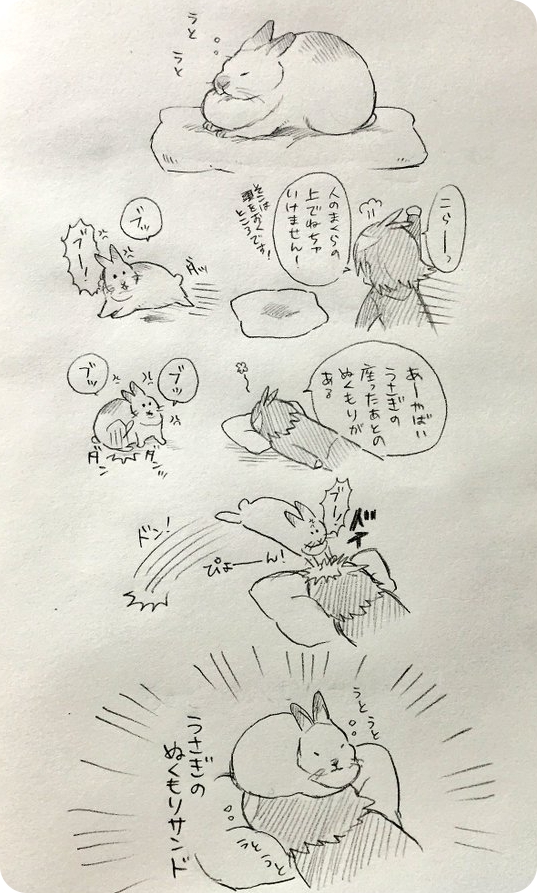 うと
うと
こらーっ
人のまくらの
上でねちゃ
いけません！
そこは
頭をおく
ところです！
ブッ
ブー！
ダッ
あーやばい
うさぎの
座ったあとの
ぬくもりが
ある
ブッ
ブッ
ダン
ダン
ブー！
バッ
ぴょーーん！
ドン！
うと
うと
うさぎの
ぬくもりサンド
うと
うと